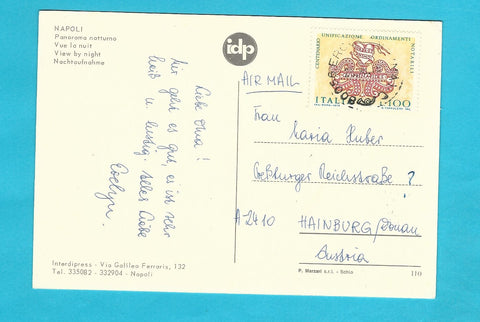 NAPOLI
Panorama notturno
Vue la nuit
View by night
Nachtaufnahme
idp
CENTENARIO UNIFICAZIONE ORDINAMENTI NOTARILI
ITALIA L.100
AIR MAIL
Liebe Oma!
Mir geht es gut, es ist sehr
heiß u. lustig. Alles Liebe
Evelyn.
Frau
Maria Huber
Preßburger Reichsstraße ?
A-2410 HAINBURG/Donau
Austria
Interdipress - Via Galileo Ferraris, 132
Tel. 335082 - 332904 - Napoli
P. Marzari s.r.l. - Schio
110